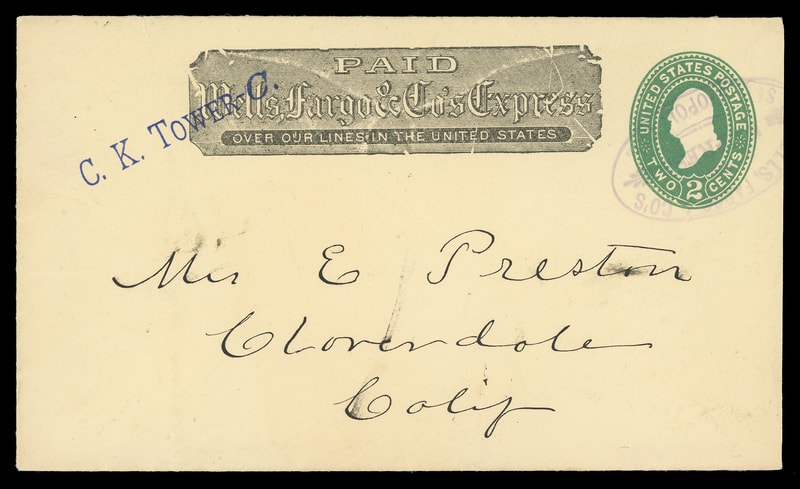 PAID
Wells, Fargo & Co's Express
OVER OUR LINES IN THE UNITED STATES
C. K. TOWER-C.
UNITED STATES POSTAGE
TWO 2 CENTS
CO'S
E Preston
Cloverdale
Calif